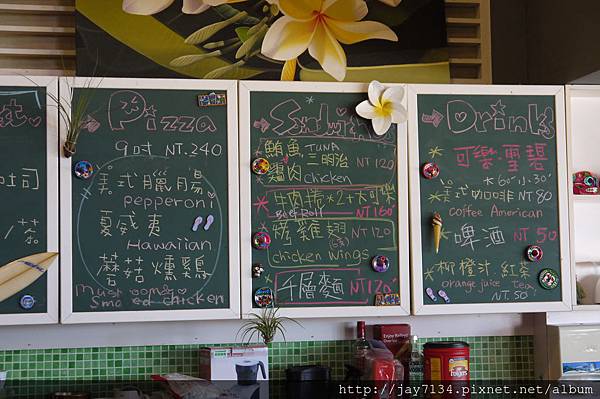 吐司
Pizza
9吋 NT.240
美式臘腸
pepperoni
夏威夷
Hawaiian
蘑菇燻雞
Smoked chicken
鮪魚 TUNA
三明治 NT 120
雞肉 chicken
牛肉捲×2+大可樂
Beef Roll NT 160
烤雞翅 NT 120
chicken wings
千層麵 NT 120
Drink
可樂.雪碧
大60 小30
美式咖啡 NT 80
coffee American
啤酒 NT 50
柳橙汁.紅茶
orange juice Tea
NT 50
Folgers
http://jay7134.pixnet.net/album